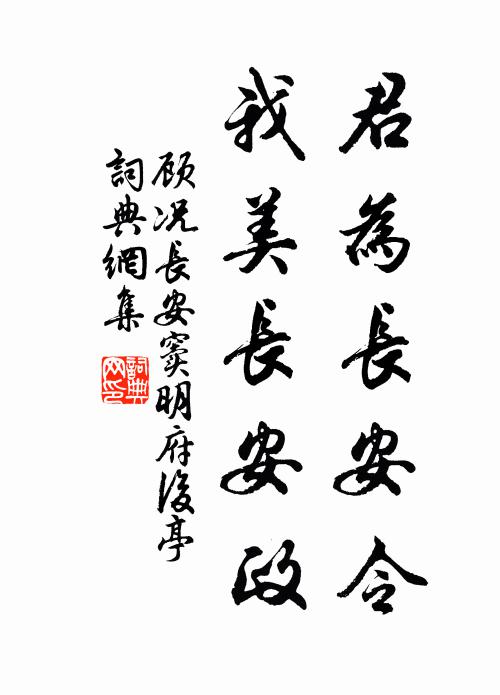 君為長安令
我美長安政
顾况長安窦明府後亭
詞典網集
詞典網印